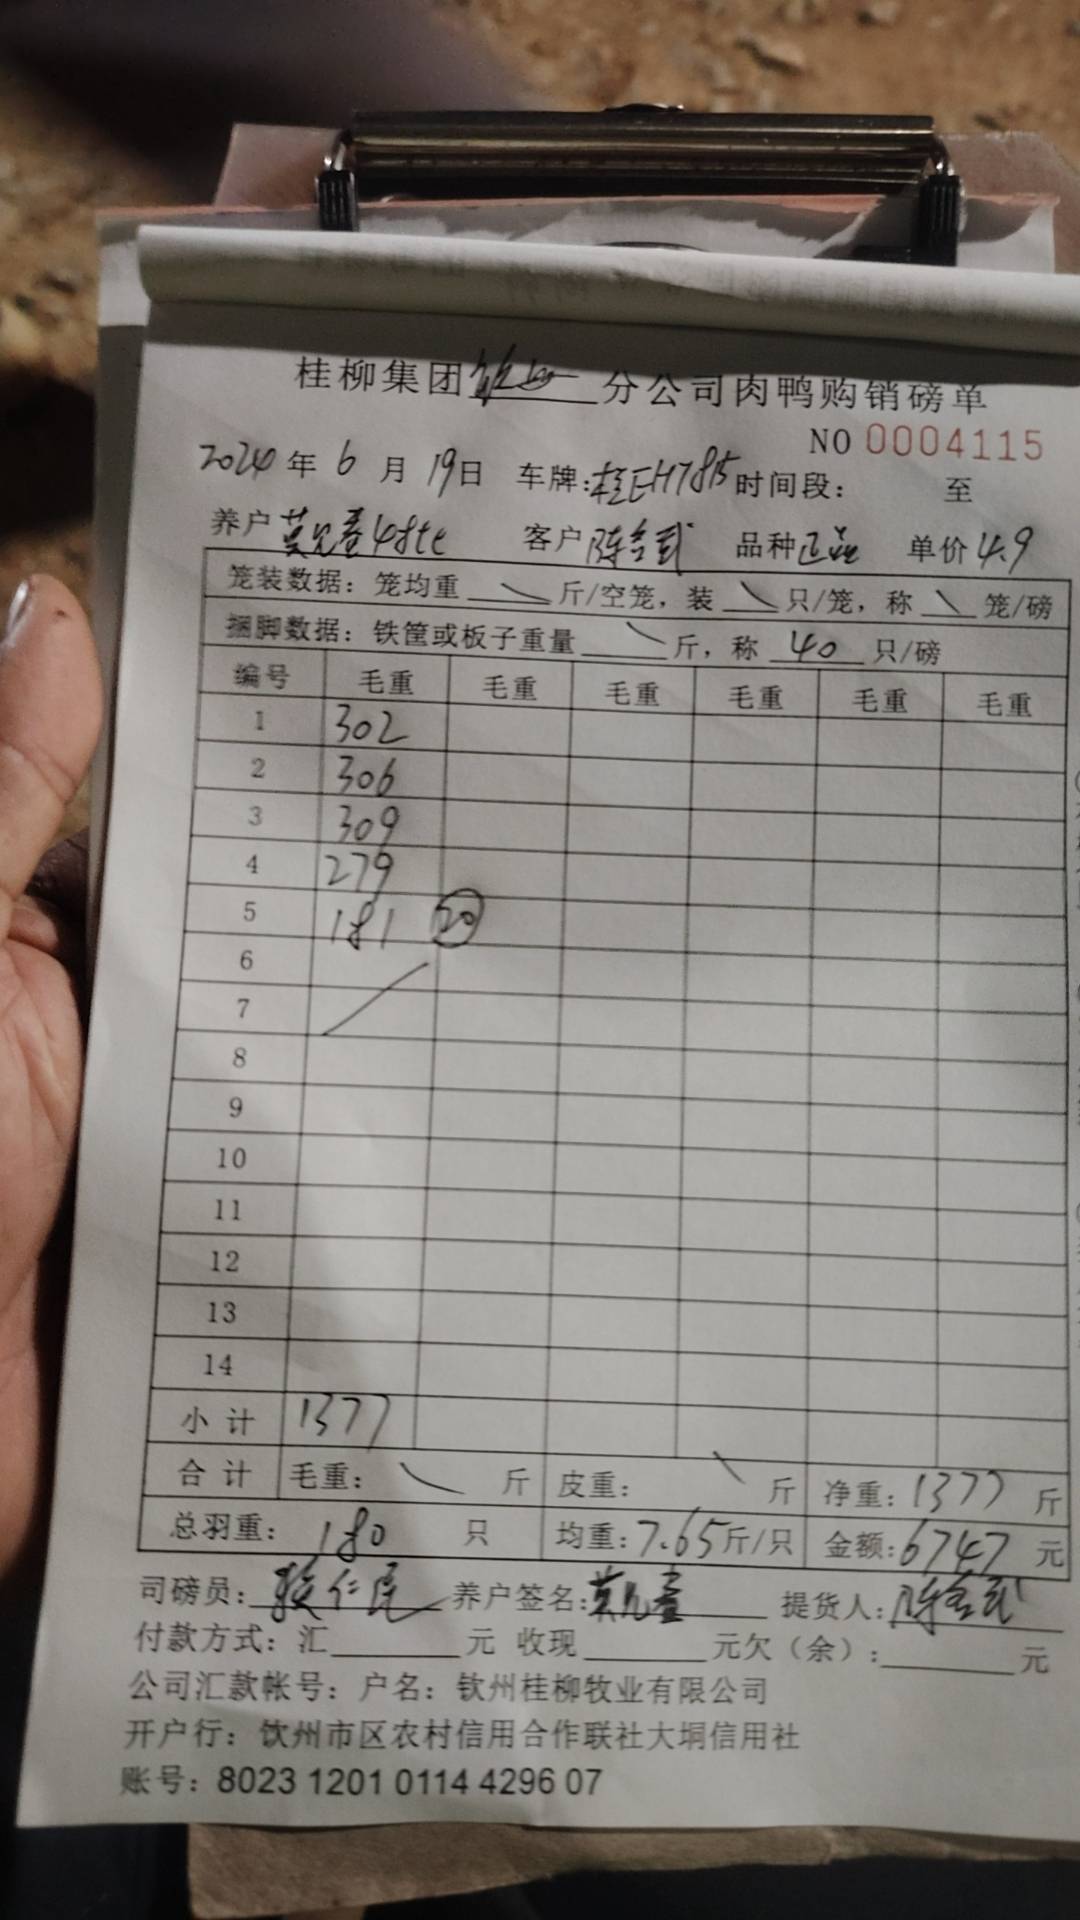 桂柳集团 分公司肉鸭购销磅单
NO 0004115
2024年6月19日 车牌:桂EH7815 时间段: 至
养户 莫兄臺 客户 陈 武 品种 正品 单价 4.9
笼装数据: 笼均重 斤/空笼, 装 只/笼, 称 笼/磅
捆脚数据: 铁筐或板子重量 斤, 称 40 只/磅
编号 毛重 毛重 毛重 毛重 毛重 毛重
1 302
2 306
3 309
4 279
5 181 20
6
7
8
9
10
11
12
13
14
小计 1377
合计 毛重: 斤 皮重: 斤 净重: 1377 斤
总羽重: 180 只 均重: 7.65 斤/只 金额: 6747 元
司磅员: 仁 养户签名: 莫兄臺 提货人: 陈 武
付款方式: 汇 元 收现 元欠(余): 元
公司汇款帐号: 户名: 钦州桂柳牧业有限公司
开户行: 钦州市区农村信用合作联社大垌信用社
账号: 8023 1201 0114 4296 07